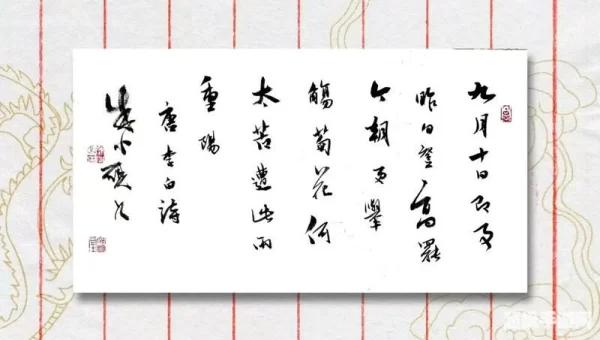 九月十日即事
昨日登高罷
今朝更舉
觴菊花何
太苦遭此兩
重陽
唐李白詩